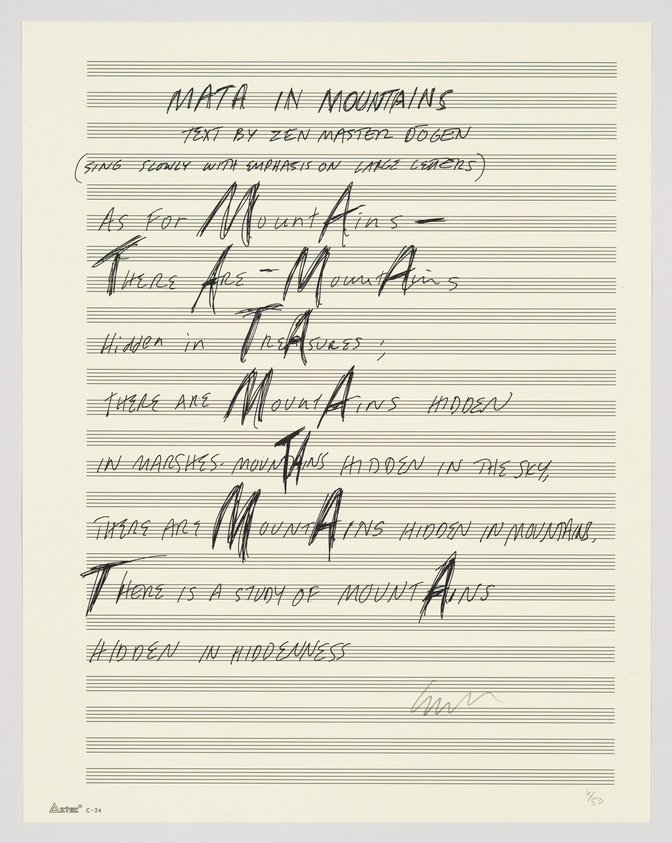 MATA IN MOUNTAINS
TEXT BY ZEN MASTER DŌGEN
(SING SLOWLY WITH EMPHASIS ON LARGE LETTERS)
As For MountAins —
THERE ARE – MountAins
Hidden in TREASURES;
THERE ARE MountAINS HIDDEN
IN MARSHES. MOUNTAINS HIDDEN IN THE SKY,
THERE ARE MOUNTAINS HIDDEN IN MOUNTAINS,
THERE IS A STUDY OF MOUNTAINS
HIDDEN IN HIDDENNESS
6/50
Aztec® C-24